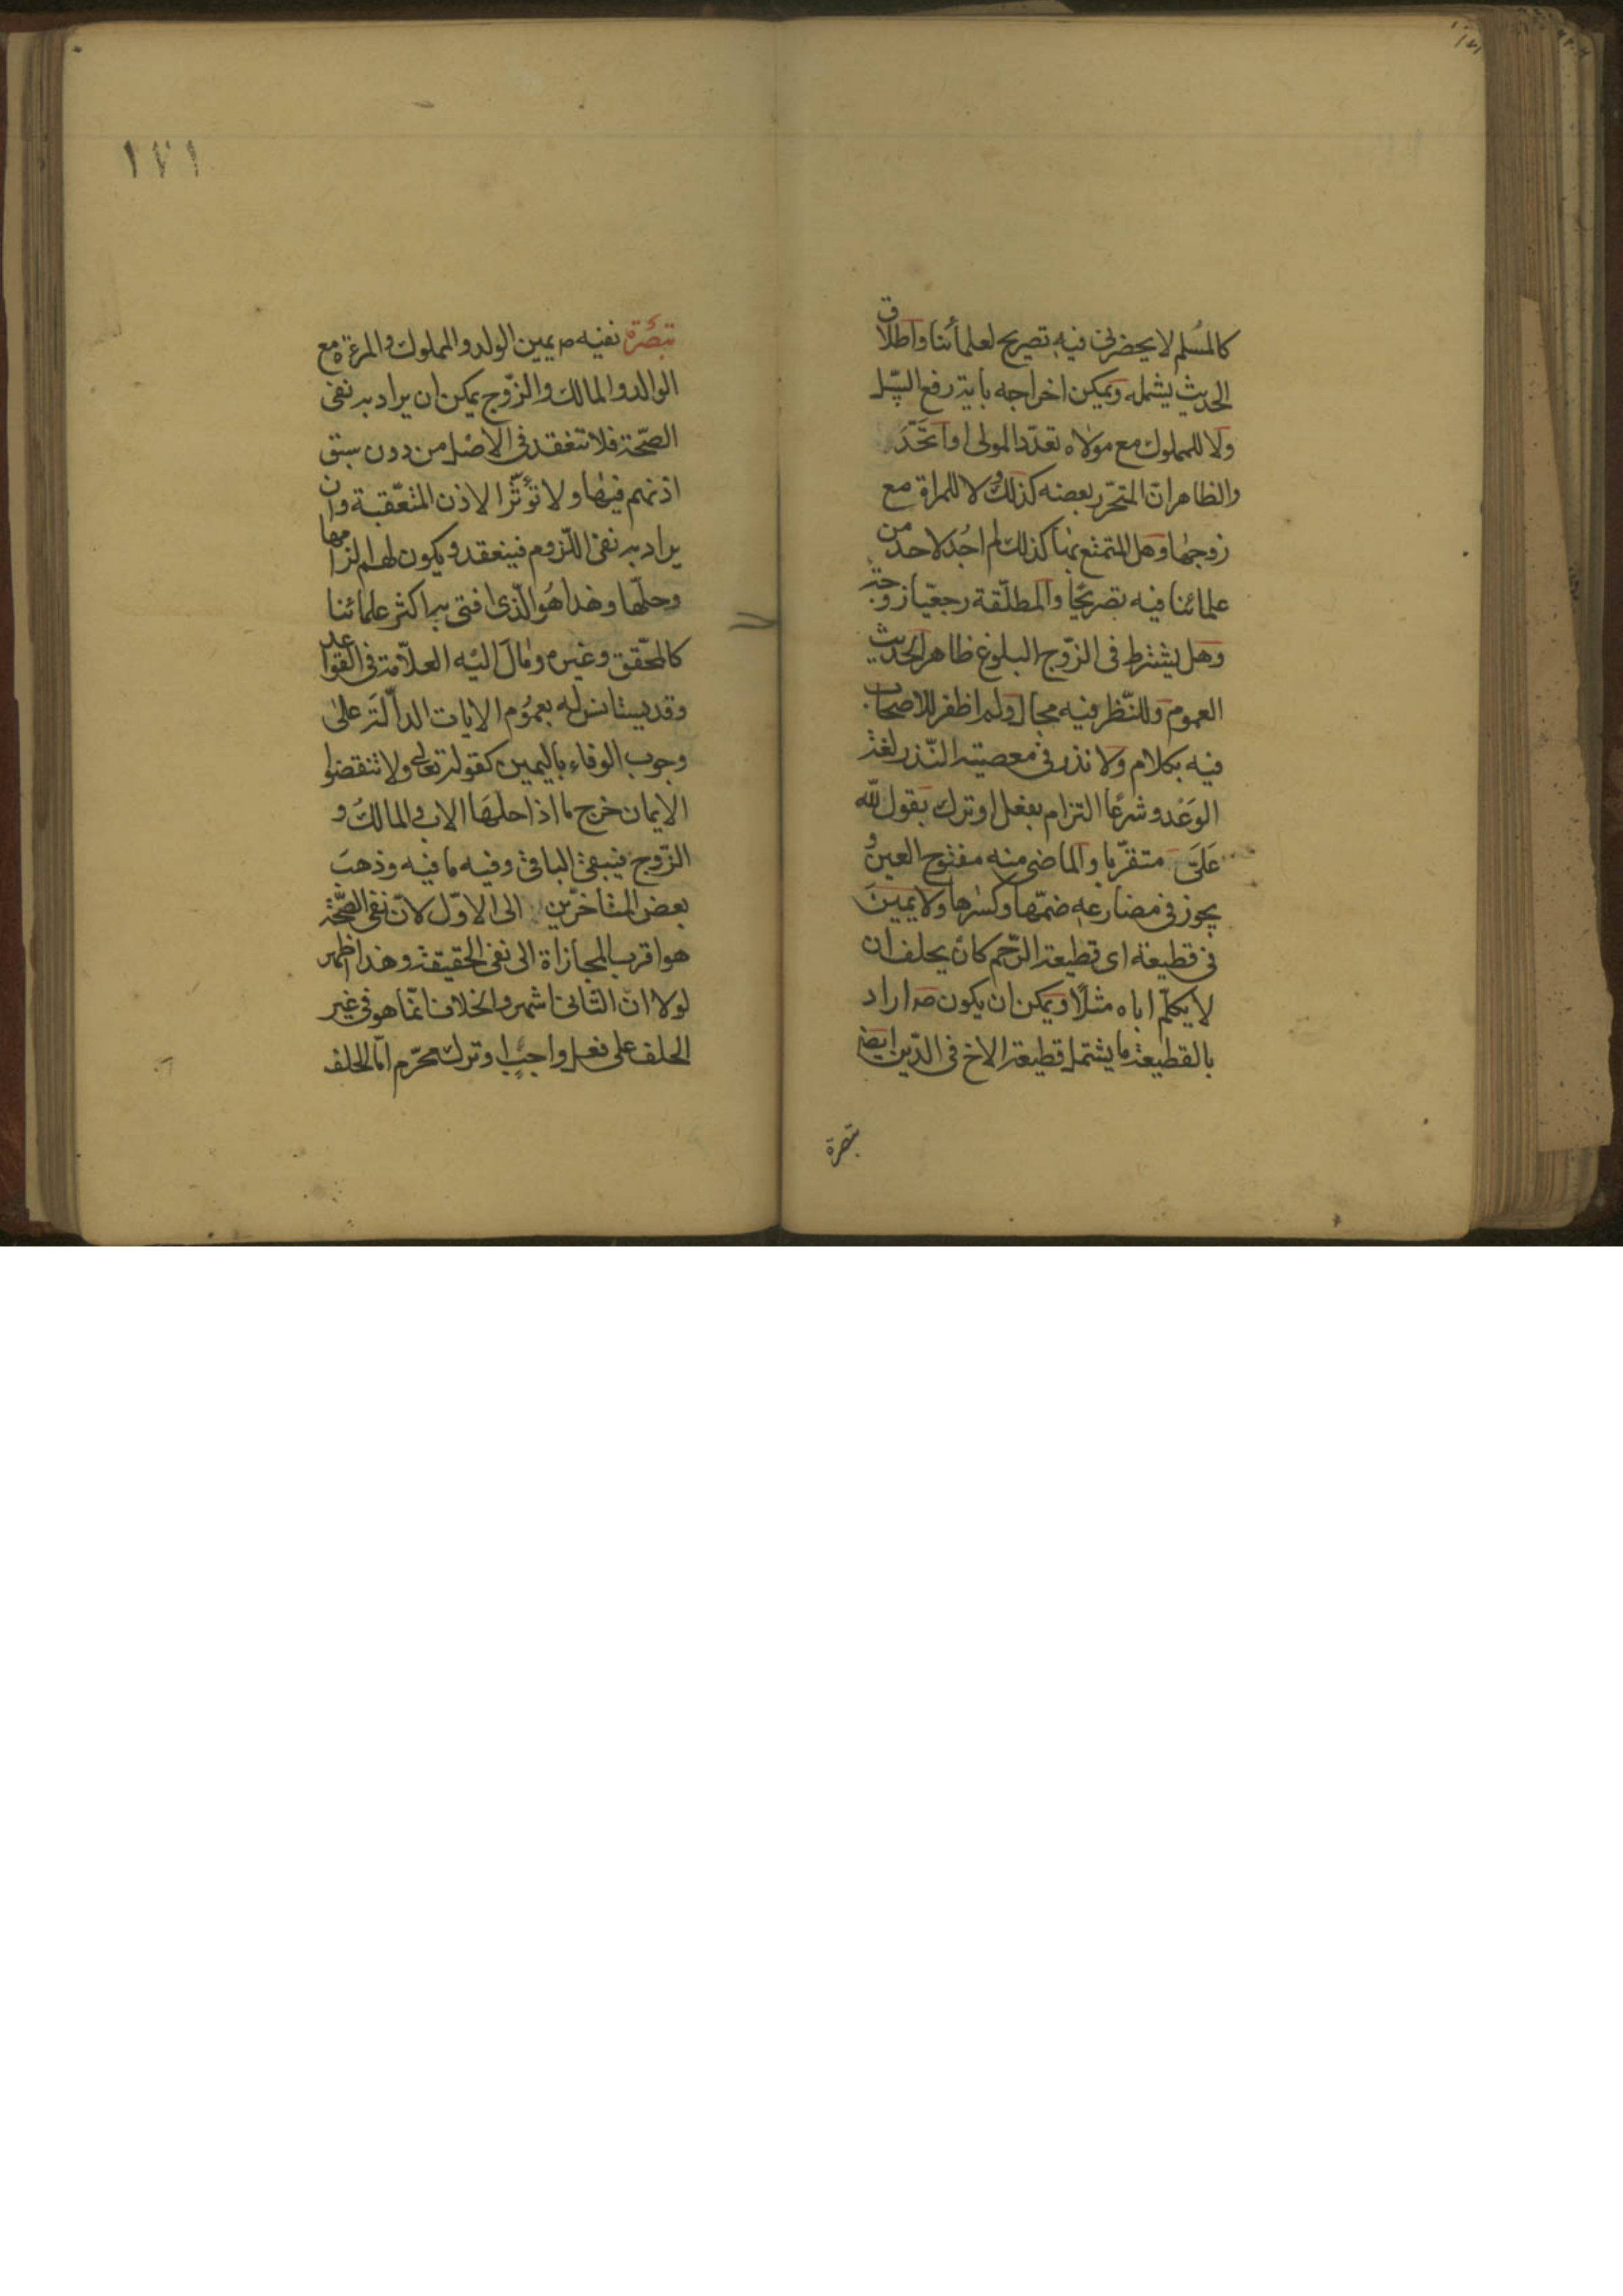 كالمسلم لا يحضرنى فيه تصريح لعلمائنا واطلاق
الحديث يشمله ويمكن اخراجه باية رفع السبيل
ولا للمملوك مع مولاه تعدد المولى او اتحد
والظاهر ان المتحرر بعضه كذلك ولا للمراة مع
زوجها وهل المتمتع بها كذلك لم اجد لاحد من
علمائنا فيه تصريحا والمطلقة رجعيا زوجة
وهل يشترط فى الزوج البلوغ ظاهر الحديث
العموم وللنظر فيه مجال ولم اظفر للاصحاب
فيه بكلام ولا نذر فى معصية النذر لغة
الوعد وشرعا التزام بفعل او ترك بقول لله
على متقربا والماضى منه مفتوح العين و
يجوز فى مضارعه ضمها وكسرها ولا يمين
فى قطيعة اى قطيعة الرحم كان يحلف ان
لا يكلم اباه مثلا ويمكن ان يكون ص اراد
بالقطيعة ما يشتمل قطيعة الاخ فى الدين ايضا
تبصرة
١٧١
تبصرة نفيه ص يمين الولد والمملوك والمرءة مع
الوالد والمالك والزوج يمكن ان يراد به نفى
الصحة فلا تنعقد فى الاصل من دون سبق
اذنهم فيها ولا تؤثر الاذن المتعقبة وان
يراد به نفى اللزوم فينعقد ويكون لهم الزامها
وحلها وهذا هو الذى افتى به اكثر علمائنا
كالمحقق وغيره ومال اليه العلامة فى القواعد
وقد يستانس له بعموم الايات الدالة على
وجوب الوفاء باليمين كقوله تعالى ولا تنقضوا
الايمان خرج ما اذا حلها الاب والمالك و
الزوج فيبقى الباقى وفيه ما فيه وذهب
بعض المتاخرين الى الاول لان نفى الصحة
هو اقرب المجازاة الى نفى الحقيقة وهذا اظهر
لولا ان الثانى اشهر والخلاف انما هو فى غير
الحلف على فعل واجب او ترك محرم اما الحلف